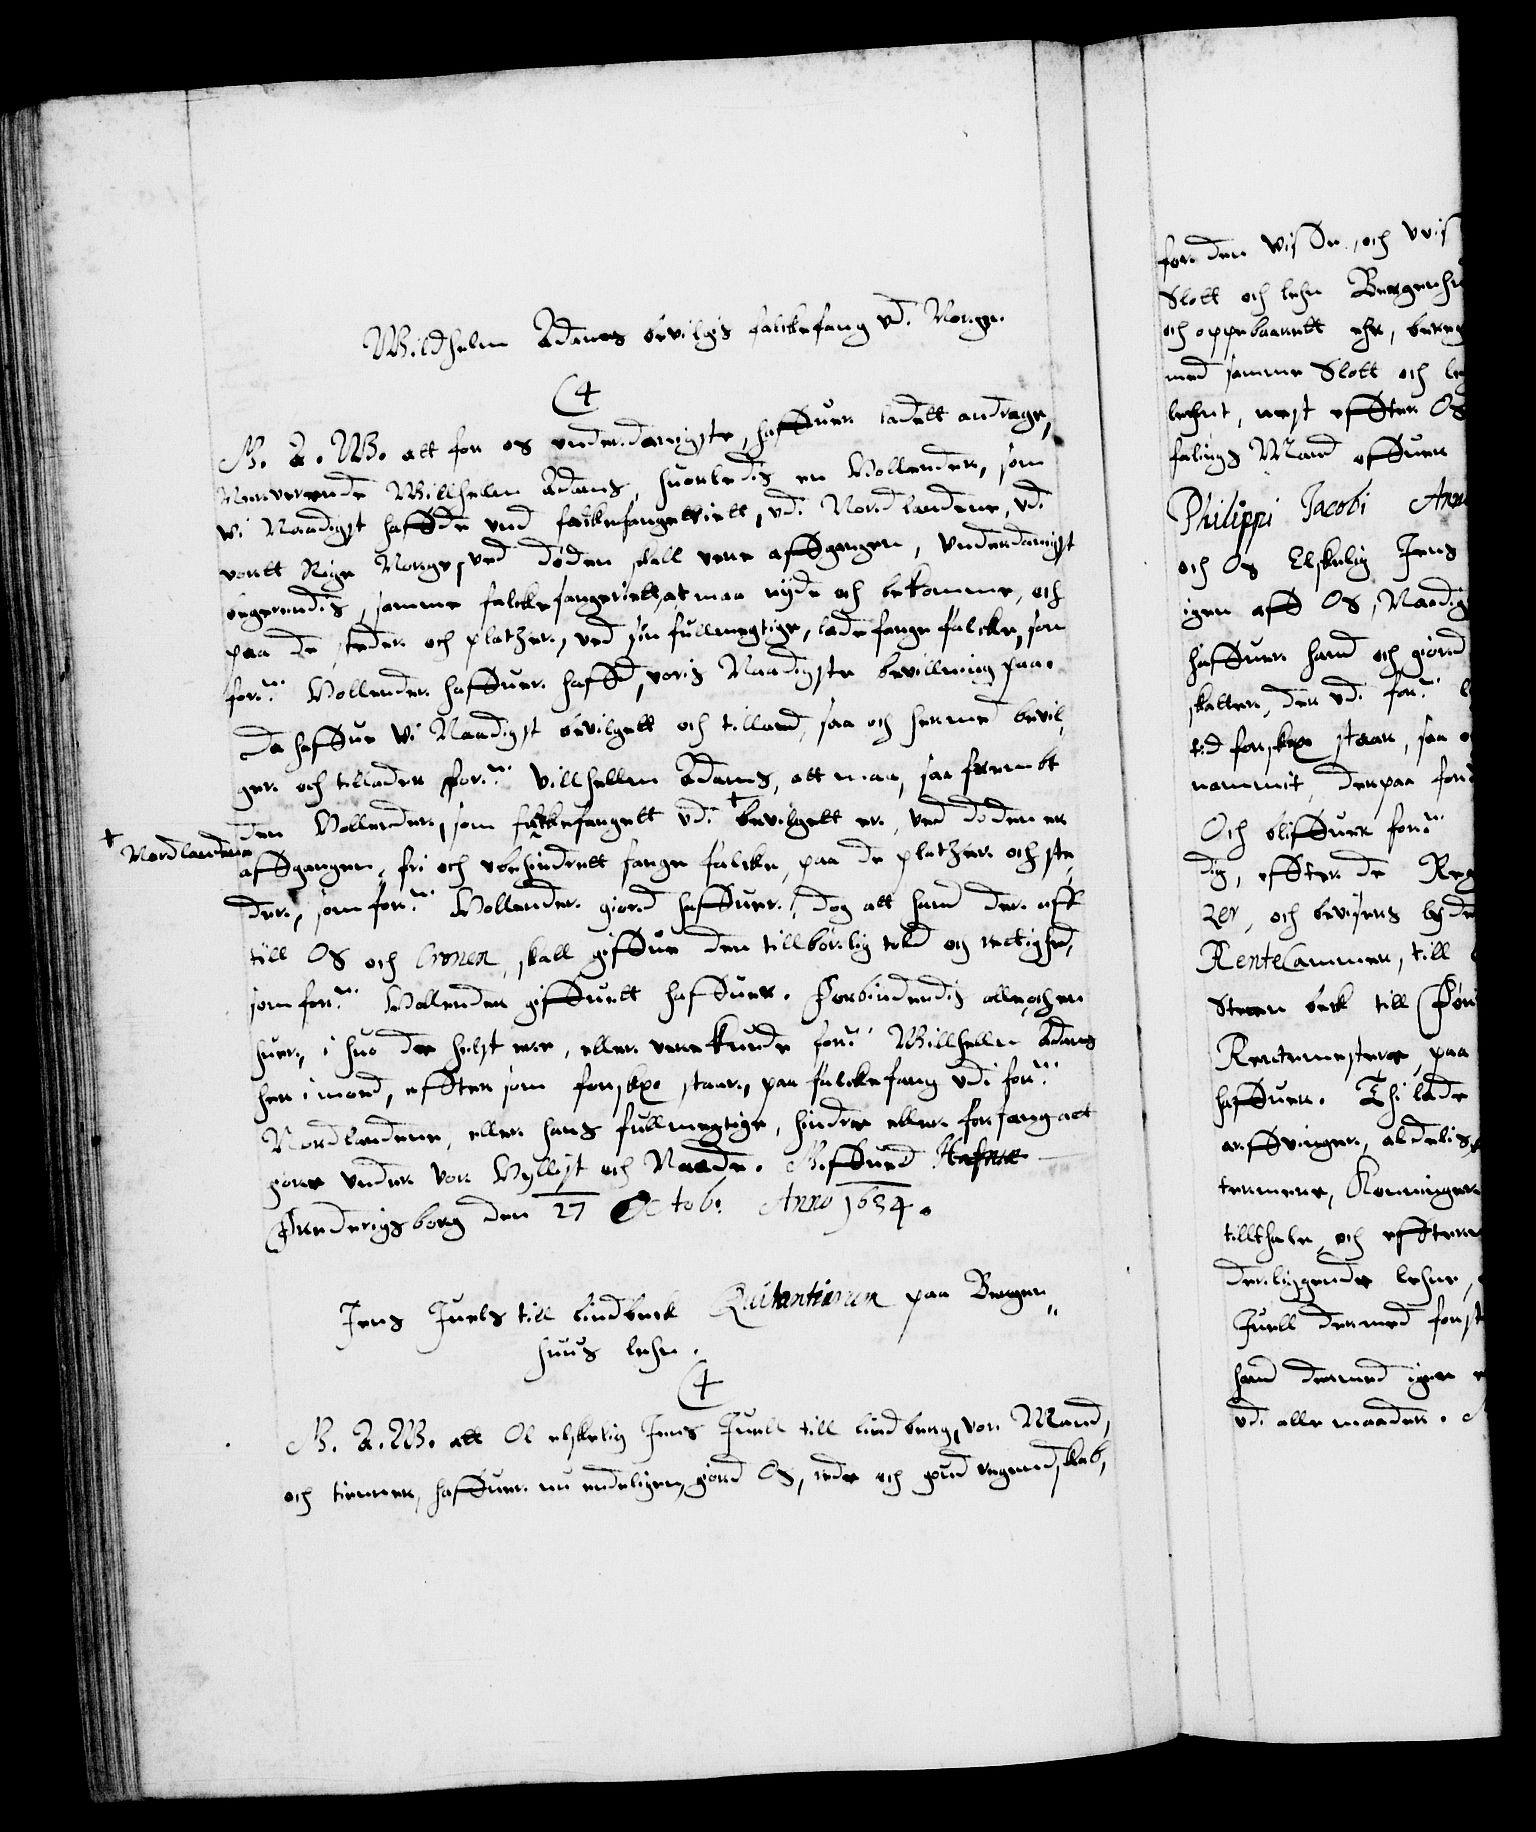 Wildhelm Adams bevilgis falckefang vdi Norge.
C4
G. A. W. att for os underdanigste, haffuer ladett andrage,
Nerverende Willhelm Adams, huorledis en Hollender, som
wi Naadigst haffde und falckefangeriett, udi Nordlandene, udi
vortt Rige Norge, ved døden skall vere affgangen, Underdanigst
begerendis, samme falckefangeriett, at maa nyde och bekomme, och
paa de steder och platzer, ved sin fullmegtige, lade fange falcke, som
forne Hollender haffuer hafft, voris Naadigste bevillning paa.
Da haffue Wi Naadigst bevilgett och tilladt, saa och hermed bevil,
ger och tillader forne Villhellm Adams, att maa, saa frembt
den Hollender, som falckefangett udi † bevilgett er, ved døden er
† Nordlandene
affgangen, fri och ubehindrett fange falcke, paa de platzer och ste,
der, som forne Hollender giord haffuer, dog att hand der aff
till OS och Cronen, skall giffue den tilbørlig told og rettighed,
som forne Hollender giffuett haffuer. Forbindendis alle, och en
huer, i huo de helst ere, eller vere kunde forne Willhellm Adams
her i mod, effter som forskreffuit staar, paa falckefang udi forne
Nordlandene, eller hans fullmegtige, hindre eller forfang att
giøre under vor Hyllist och Naade. Giffued Hafniæ
Frederigsborg den 27 Octob: Anno 1634.
Jens Juels till Lindbeck Quitantierum paa Bergen,,
huus lehn.
C4
G. A. W. att Os elskelig Jens Juell till Lindberg, vor Mand,
och tienner, haffuer nu endeligen, giord Os, rede och goed regendskab,
for den wisse, och uvis
Slott och lehn Bergenhu
och oppebaarett ehr, bereg
med samme Slott och leh
lehnit, nest effter Os
falings Mand effuer
Philippi Jacobi Ann
och Os Elskelig Jens
igen aff Os, Naadig
haffuer hand och giord
skatter, der udi forne
tid forskreffuit staar, saa o
nammit, derpaa ford
Och bliffuer forne
dig, effter de Reg
zer, och bevisers lyde
RenteCammer, till
Steen beck till Før
Rentemestere, paa
haffuer. Thi lade
arffvinger, aldelis,
termere, Konninger
tillthale, och effterm
der liggende lehne,
Juell dermed forst
hand dermed igen
udi alle maader.